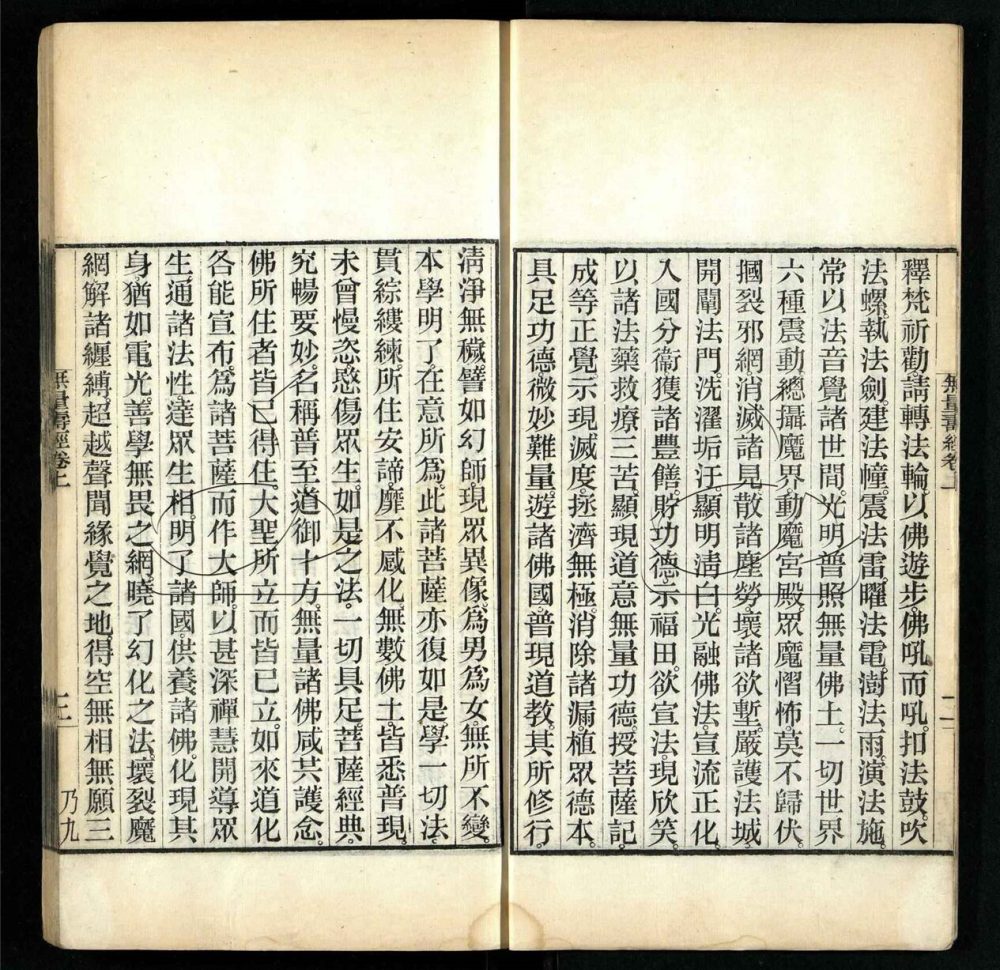 無量壽經卷上 二
釋梵祈勸請轉法輪。以佛遊步。佛吼而吼。扣法鼓。吹
法螺。執法劍。建法幢。震法雷。曜法電。澍法雨。演法施。
常以法音覺諸世間。光明普照無量佛土。一切世界
六種震動。總攝魔界動魔宮殿。眾魔慴怖。莫不歸伏。
摑裂邪網。消滅諸見。散諸塵勞。壞諸欲塹。嚴護法城
開闡法門。洗濯垢汙。顯明清白。光融佛法。宣流正化。
入國分衞獲諸豐饍。貯功德。示福田。欲宣法。現欣笑。
以諸法藥救療三苦。顯現道意無量功德。授菩薩記。
成等正覺。示現滅度。拯濟無極。消除諸漏。植眾德本。
具足功德微妙難量。遊諸佛國。普現道教。其所修行。
清淨無穢。譬如幻師現眾異像。為男為女。無所不變。
本學明了。在意所為。此諸菩薩亦復如是。學一切法。
貫綜縷練。所住安諦。靡不感化。無數佛土。皆悉普現。
未曾慢恣。愍傷眾生。如是之法。一切具足。菩薩經典。
究暢要妙。名稱普至。道御十方。無量諸佛咸共護念。
佛所住者皆已得住。大聖所立而皆已立。如來道化
各能宣布。為諸菩薩而作大師。以甚深禪慧開導眾
生。通諸法性。達眾生相。明了諸國。供養諸佛。化現其
身猶如電光。善學無畏之網。曉了幻化之法。壞裂魔
網。解諸纏縛。超越聲聞緣覺之地。得空無相無願三
無量壽經卷上 三 乃九